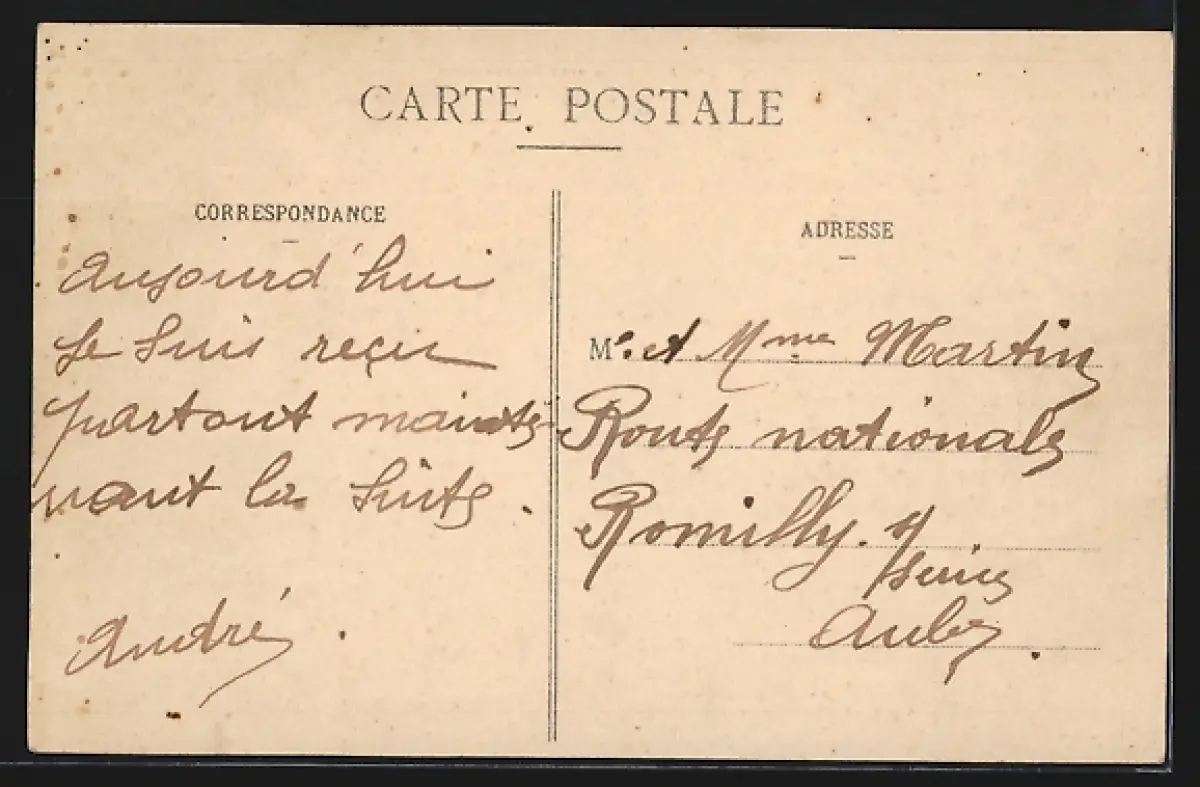 CARTE POSTALE
CORRESPONDANCE
aujourd'hui
Je suis reçu
partout mainte
nant la suite.
André.
ADRESSE
M. et Mme Martin
Route nationale
Romilly. s/
seine
Aube.